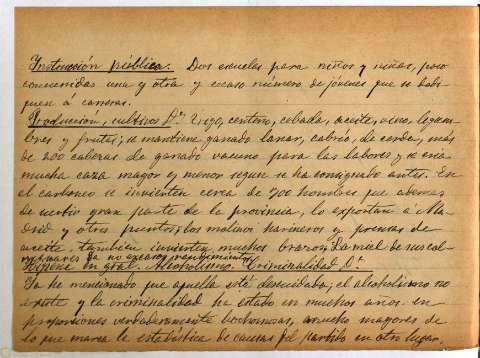 Instrucción pública. Dos escuelas para niños y niñas, poco
concurridas una y otra y escaso número de jóvenes que se dedi-
quen á carreras.
Producción, cultivos &.ª Trigo, centeno, cebada, aceite, vino, legum-
bres y frutas; se mantiene ganado lanar, cabrío, de cerda, más
de 200 cabezas de ganado vacuno para las labores y se cria
mucha caza mayor y menor segun se ha consignado antes. En
el carboneo se invierten cerca de 700 hombres que ademas
de surtir gran parte de la provincia, lo exportan á Ma-
drid y otros puntos; los molinos harineros y prensas de
aceite, tambien invierten muchos brazos; La miel de sus col-
menares da no escasos rendimientos.
Higiene en gral. Alcoholismo. Criminalidad &.ª
Ya he mencionado que aquella está descuidada; el alcoholismo no
existe y la criminalidad ha estado en muchos años en
proporciones verdaderamente bochornosas, mucho mayores de
lo que marca la estadística de causas del partido en otro lugar.